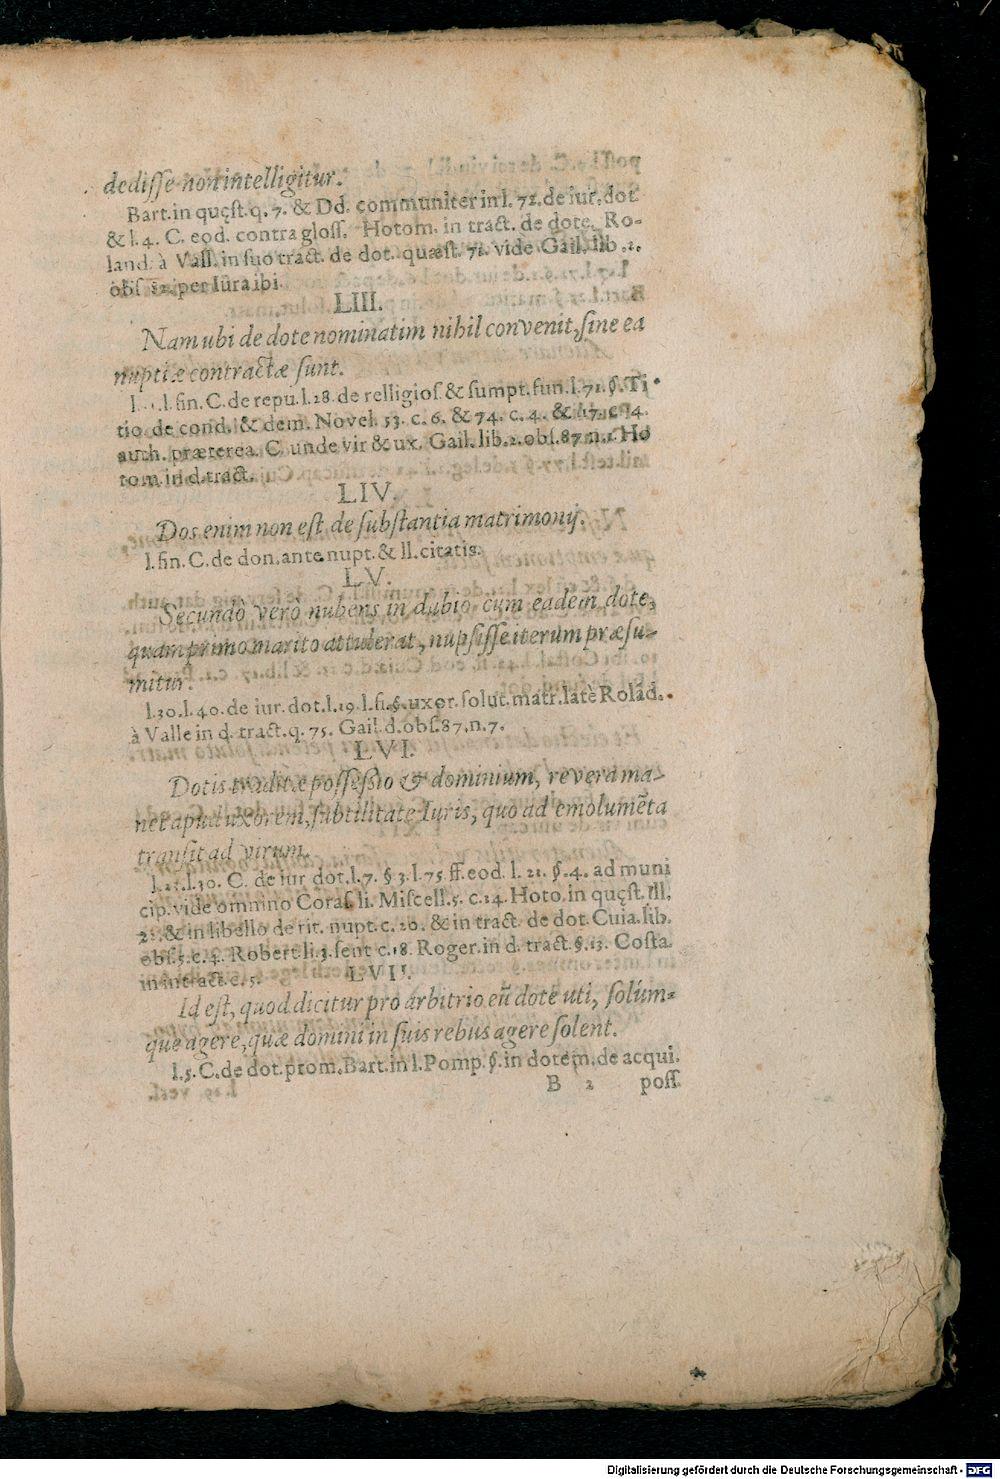 dediſſe non intelligitur.
Bart. in quęſt. q. 7. & Dd. communiter in l. 72. de iur. dot.
& l. 4. C. eod. contra gloſſ. Hotom. in tract. de dote. Ro-
land. à Vall. in ſuo tract. de dot. quæſt. 71. vide Gail. lib. 2.
obſ. 82. per Iura ibi.
LIII.
Nam ubi de dote nominatim nihil convenit, ſine ea
nuptiæ contractæ ſunt.
l. fin. C. de repu. l. 28. de relligioſ. & ſumpt. fun. l. 71. §. Ti
tio de cond. & dem. Novel. 53. c. 6. & 74. c. 4. & 117. c. 4.
auth. præterea. C. unde vir & ux. Gail. lib. 2. obſ. 87. n. 1. Ho
tom. in d. tract.
LIV.
Dos enim non eſt de ſubſtantia matrimonij.
l. fin. C. de don. ante nupt. & ll. citatis.
LV.
Secundò verò nubens in dubio cum eadem dote,
quam primo marito attulerat, nupſiſſe iterùm præſu-
mitur.
l. 30. l. 40. de iur. dot. l. 19. l. fi. §. uxor. ſolut. matr. latè Rolad.
à Valle in d. tract. q. 75. Gail. d. obſ. 87. n. 7.
LVI.
Dotis traditæ poſſeſsio & dominium, revera ma-
net apud uxorem, ſubtilitate Iuris, quo ad emolumēta
tranſit ad virum.
l. 30. C. de iur dot. l. 7. § 3. l. 75 ff. eod. l. 21. §. 4. ad muni
cip. vide omnino Coraſ. li. Miſcell. 5. c. 14. Hoto. in quęſt. Ill.
& in libello de rit. nupt. c. 20. & in tract. de dot. Cuia. lib.
obſ. 5. c. 4. Robert. li. 3. ſent c. 18. Roger. in d. tract. §. 13. Coſta.
in in tract. c. 5.
LVII.
Id eſt, quod dicitur pro arbitrio eū dote uti, ſolùm-
que agere, quæ domini in ſuis rebus agere ſolent.
l. 5. C. de dot. prom. Bart. in l. Pomp. §. in dotem. de acqui.
B 2 poſſ.
Digitalisierung gefördert durch die Deutsche Forschungsgemeinschaft - DFG